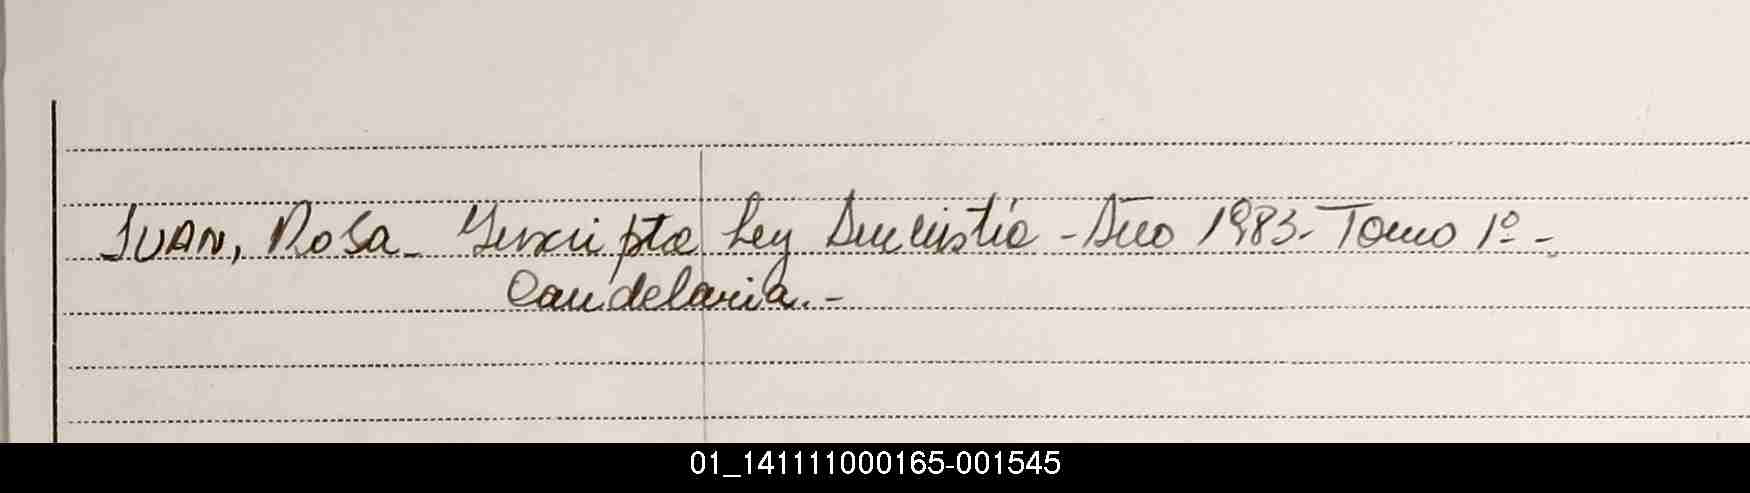 JUAN, Rosa - Inscripta Ley Amnistía - Año 1983 - Tomo 1º -
Candelaria. -
01_141111000165-001545